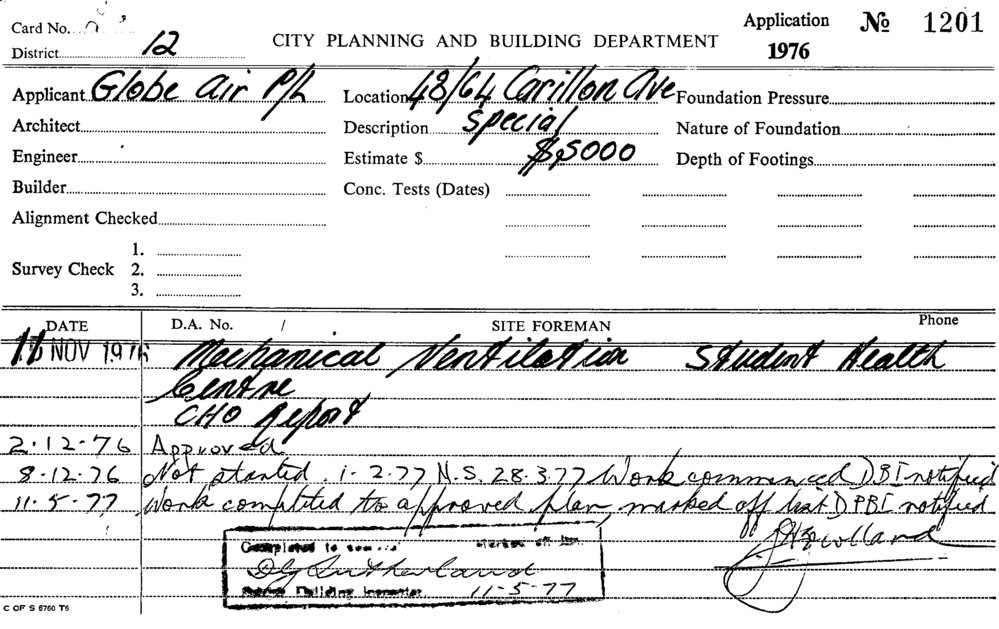 Card No.
Application № 1201
District 12
CITY PLANNING AND BUILDING DEPARTMENT
1976
Applicant Globe Air P/L Location 48/64 Carillon Ave Foundation Pressure
Architect Description Special Nature of Foundation
Engineer Estimate $ $5000 Depth of Footings
Builder Conc. Tests (Dates)
Alignment Checked
1.
Survey Check 2.
3.
DATE D.A. No. / SITE FOREMAN Phone
NOV 1976 Mechanical Ventilation Student Health
Centre
CHO Report
2.12.76 Approved
8.12.76 Not started. 1.2.77 N.S. 28.3.77 Work commenced DBI notified
11.5.77 Work completed to approved plan, marked off list DPBI notified
Completed to marked off
D G Sutherland
Building Inspector 11-5-77
C OF S 6760 T6